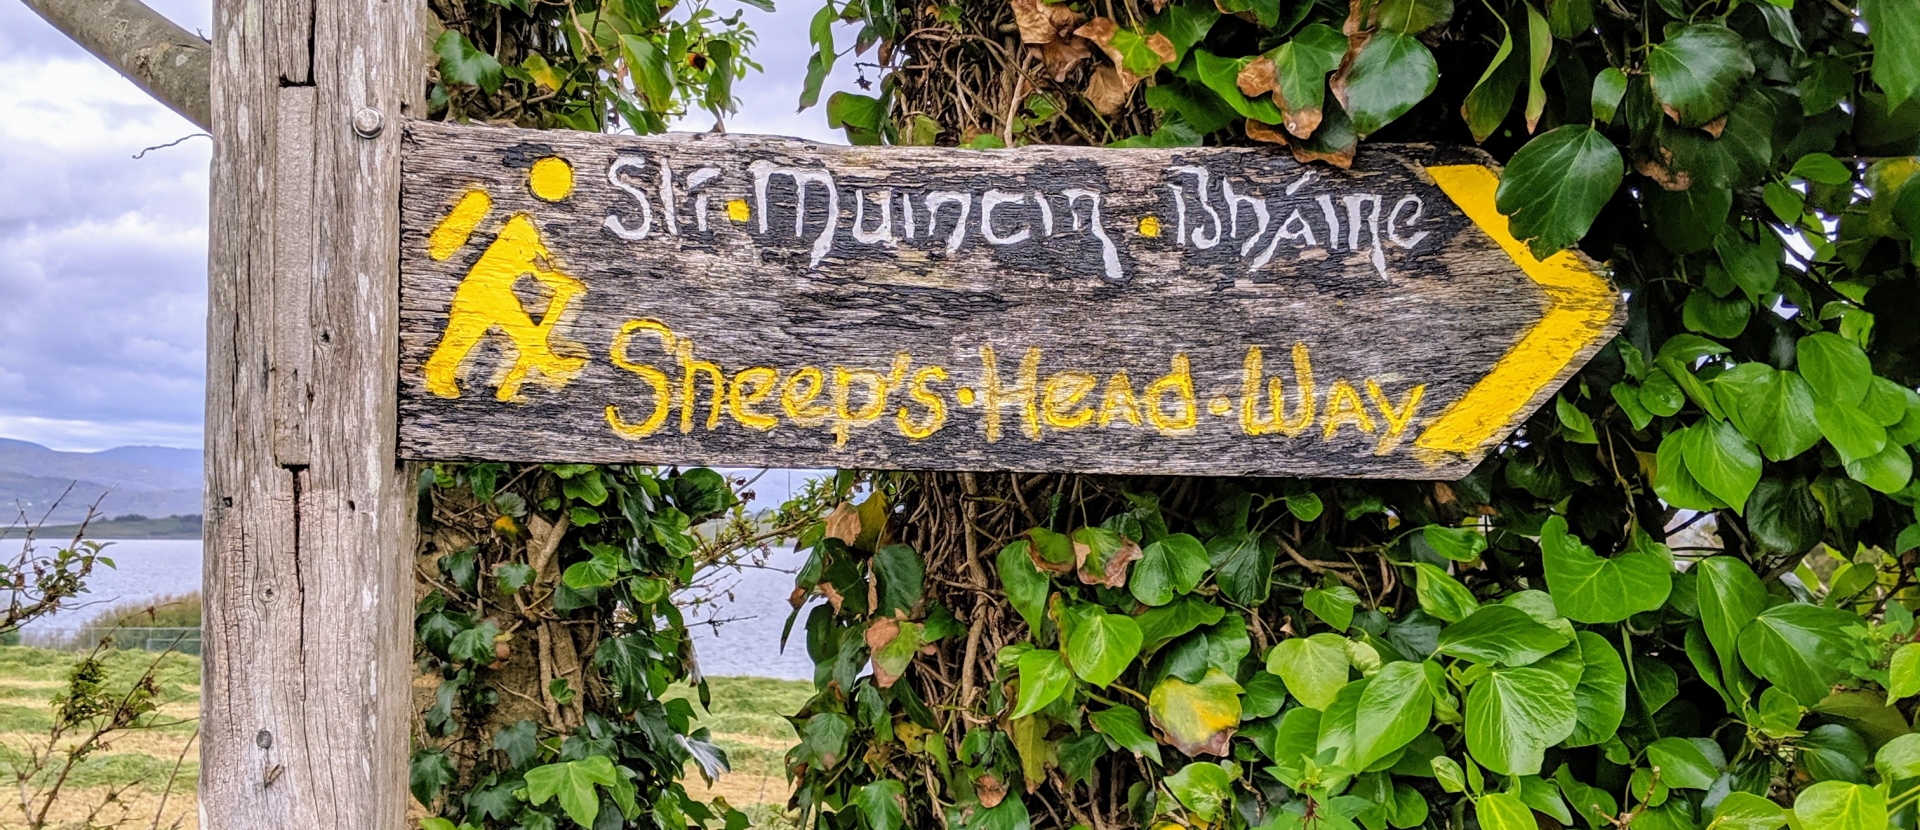 Slí·Muincin·Bháire
Sheep's·Head·Way